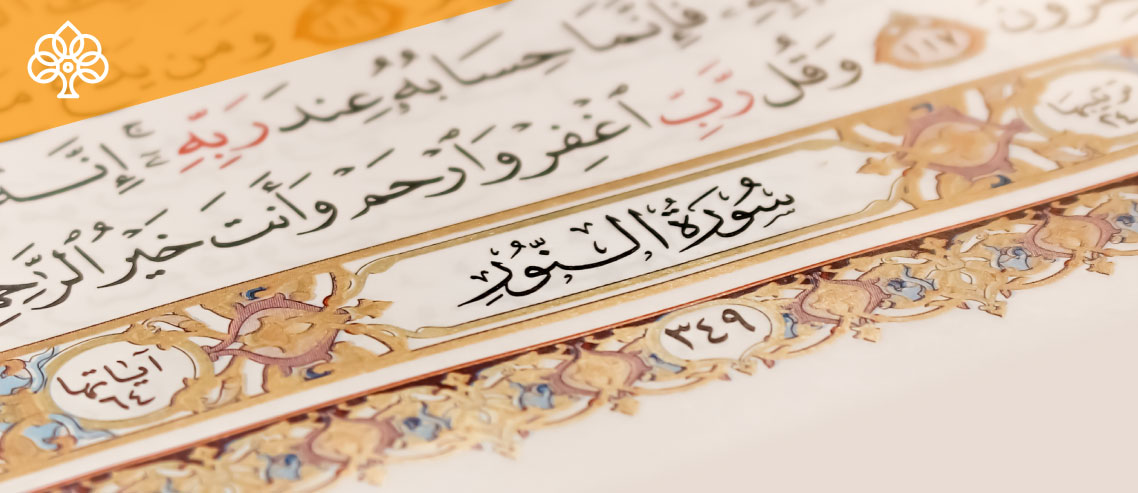 وَمَن
فَإِنَّمَا حِسَابُهُۥ عِندَ رَبِّهِۦٓ ۚ إِنَّهُۥ
١١٧ وَقُل رَّبِّ ٱغْفِرْ وَٱرْحَمْ وَأَنتَ خَيْرُ ٱلرَّٰحِمِ
سُورَةُ النُّورِ
آيَاتُهَا ٦٤
٣٤٩